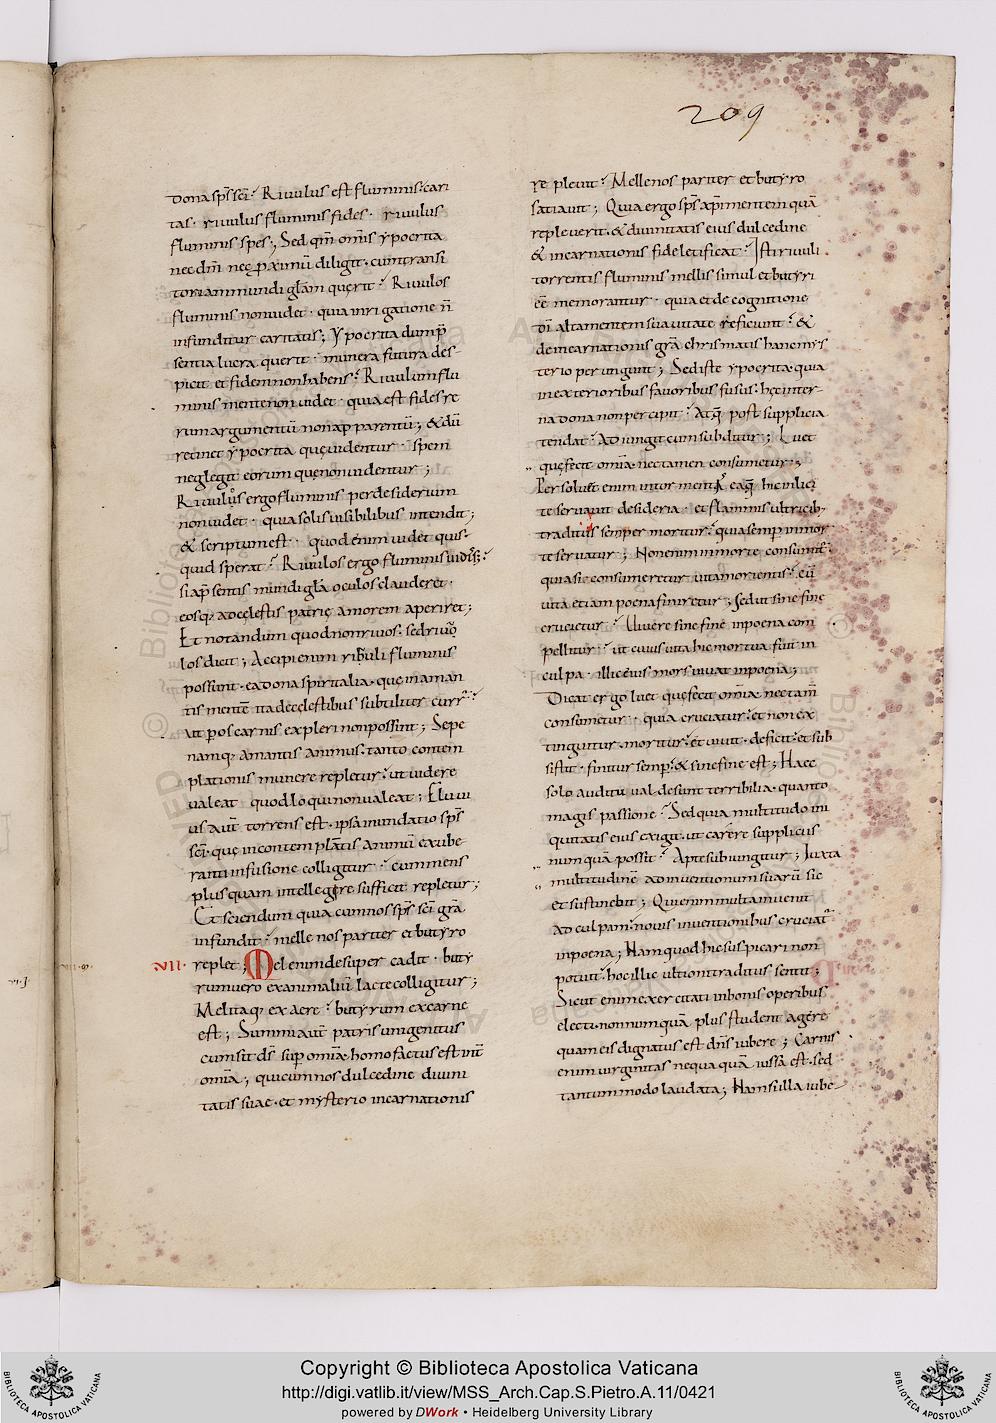 209
dona sp̄s sc̄i: Riuulus est fluminis: cari
tas· riuulus fluminis fides· riuulus
fluminis spes; Sed qm̄ om̄is ypocrita
nec dm̄ neq; p̄ximū diligit· cum transi
toriam mundi glām querit: Riuulos
fluminis non uidet· quia inrigatione n̄
infunditur caritatis; Ypocrita dum p̄
sentia lucra querit· munera futura des
picit et fidem non habens: Riuulum flu
minis mente non uidet· quia est fides re
rum argumentū non apparentiū; & dū
retinet ypocrita quę uidentur· spem
neglegit eorum quę non uidentur;
Riuulos ergo fluminis per desiderium
non uidet· quia solis uisibilibus intendit;
& scriptum est· quod enim uidet quis·
quid sperat: Riuulos ergo fluminis uideret:
si a p̄sentis mundi glā oculos clauderet·
eosq; ad cęlestis patrię amorem aperiret;
Et notandum quod non riuos: sed riuu
los dicit; Accipi enim riuuli fluminis
possunt· ea dona spiritalia· que in aman
tis mentē ita de cęlestibus subtiliter curr̄:
ut p os carnis expleri non possint; Sepe
namq; amantis animus: tanto contem
plationis munere repletur: ut uidere
ualeat quod loqui non ualeat; Fluui
us aut̄ torrens est· ipsa inundatio sp̄s
sc̄i· quę in contemplantis animū exube
ranti infusione colligitur: cum mens
plus quam intellegere sufficit repletur;
Et sciendum quia cum nos sp̄s sc̄i grā
infundit: melle nos pariter et butyro
VII·
replet; Mel enim desuper cadit· buty
rum uero ex animaliū lacte colligitur;
Mel itaq; ex aere: butyrum ex carne
est; Summi aut̄ patris unigenitus
cum sit ds̄ sup om̄ia· homo factus est int̄
om̄ia; qui cum nos dulcedine diuini
tatis suae· et mysterio incarnationis
re pleuit: Melle nos pariter et butyro
satiauit; Quia ergo sp̄s ap̄i mentem quā
repleuerit· & diuinitatis eius dulcedine
& incarnationis fide letificat: Isti riuuli
torrentis fluminis mellis simul et butyri
eē memorantur· quia et de cognitione
dī alta mentem suauitate reficiunt: &
de incarnationis grā chrismatis hanc mys
terio perungunt; Sed iste ypocrita· quia
in exterioribus fauoribus fusus: hęc inter
na dona non percipit: Atq; post supplicia
tendat: Adiungit cum subditur; Luet
quę fecit om̄ia nec tamen consumetur;
Persoluet enim in tormentis ea q; hic inlici
te seruauit desideria· et flammis ultricib;
traditus semper moritur: quia semp in mor
te seruatur; Non enim in morte consumit̄:
quia si consumeretur uita morientis: cū
uita etiam poena finiretur; Sed ut sine fine
crucietur: Viuere sine fine in poena com
pellitur: ut cuius uita hic mortua fuit in
culpa· illic eius mors uiuat in poena;
Dicat ergo luet quę fecit om̄ia nec tam̄
consumetur· quia cruciatur: et non ex
tinguitur· moritur: et uiuit· deficit: et sub
sistit· finitur semp: & sine fine est; Haec
solo auditu ualde sunt terribilia· quanto
magis passione: Sed quia multitudo ini
quitatis eius exigit· ut carere suppliciis
numquā possit: Apte subiungitur; Iuxta
multitudinē adinuentionum suarū sic
et sustinebit; Qui enim multa inuenit
ad culpam: nouis inuentionibus cruciat̄
in poena; Nam quod hic suspicari non
potuit: hoc illic ultioni traditus sentit;
Sicut enim exercitati in bonis operibus
electi· nonnumquā plus student agere
quam eis dignatus est dn̄s iubere; Carnis
enim uirginitas nequaquā iussa est· sed
tantummodo laudata; Nam si illa iube
Copyright © Biblioteca Apostolica Vaticana
http://digi.vatlib.it/view/MSS_Arch.Cap.S.Pietro.A.11/0421
powered by DWork • Heidelberg University Library
BIBLIOTECA APOSTOLICA VATICANA
BIBLIOTECA APOSTOLICA VATICANA